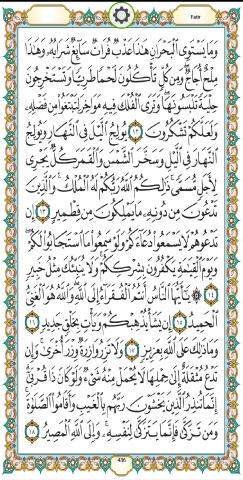 Fatir
وَمَا يَسْتَوِى الْبَحْرَانِ هٰذَا عَذْبٌ فُرَاتٌ سَآئِغٌ شَرَابُهٗ وَهٰذَا
مِلْحٌ اُجَاجٌ ؕ وَمِنْ كُلٍّ تَاْكُلُوْنَ لَحْمًا طَرِيًّا وَّتَسْتَخْرِجُوْنَ
حِلْيَةً تَلْبَسُوْنَهَا ۚ وَتَرَى الْفُلْكَ فِيْهِ مَوَاخِرَ لِتَبْتَغُوْا مِنْ فَضْلِهٖ
وَلَعَلَّكُمْ تَشْكُرُوْنَ ۝١٢ يُوْلِجُ الَّيْلَ فِى النَّهَارِ وَيُوْلِجُ
النَّهَارَ فِى الَّيْلِ وَسَخَّرَ الشَّمْسَ وَالْقَمَرَ كُلٌّ يَّجْرِىْ
لِاَجَلٍ مُّسَمًّى ؕ ذٰلِكُمُ اللّٰهُ رَبُّكُمْ لَهُ الْمُلْكُ ؕ وَالَّذِيْنَ
تَدْعُوْنَ مِنْ دُوْنِهٖ مَا يَمْلِكُوْنَ مِنْ قِطْمِيْرٍ ۝١٣ اِنْ
تَدْعُوْهُمْ لَا يَسْمَعُوْا دُعَآءَكُمْ ۚ وَلَوْ سَمِعُوْا مَا اسْتَجَابُوْا لَكُمْ ؕ
وَيَوْمَ الْقِيٰمَةِ يَكْفُرُوْنَ بِشِرْكِكُمْ ؕ وَلَا يُنَبِّئُكَ مِثْلُ خَبِيْرٍ
۝١٤ يٰۤاَيُّهَا النَّاسُ اَنْتُمُ الْفُقَرَآءُ اِلَى اللّٰهِ ۚ وَاللّٰهُ هُوَ الْغَنِىُّ
الْحَمِيْدُ ۝١٥ اِنْ يَّشَاْ يُذْهِبْكُمْ وَيَاْتِ بِخَلْقٍ جَدِيْدٍ ۝١٦
وَمَا ذٰلِكَ عَلَى اللّٰهِ بِعَزِيْزٍ ۝١٧ وَلَا تَزِرُ وَازِرَةٌ وِّزْرَ اُخْرٰى ؕ وَاِنْ
تَدْعُ مُثْقَلَةٌ اِلٰى حِمْلِهَا لَا يُحْمَلْ مِنْهُ شَىْءٌ وَّلَوْ كَانَ ذَا قُرْبٰى ؕ
اِنَّمَا تُنْذِرُ الَّذِيْنَ يَخْشَوْنَ رَبَّهُمْ بِالْغَيْبِ وَاَقَامُوا الصَّلٰوةَ ؕ
وَمَنْ تَزَكّٰى فَاِنَّمَا يَتَزَكّٰى لِنَفْسِهٖ ؕ وَاِلَى اللّٰهِ الْمَصِيْرُ ۝١٨
436